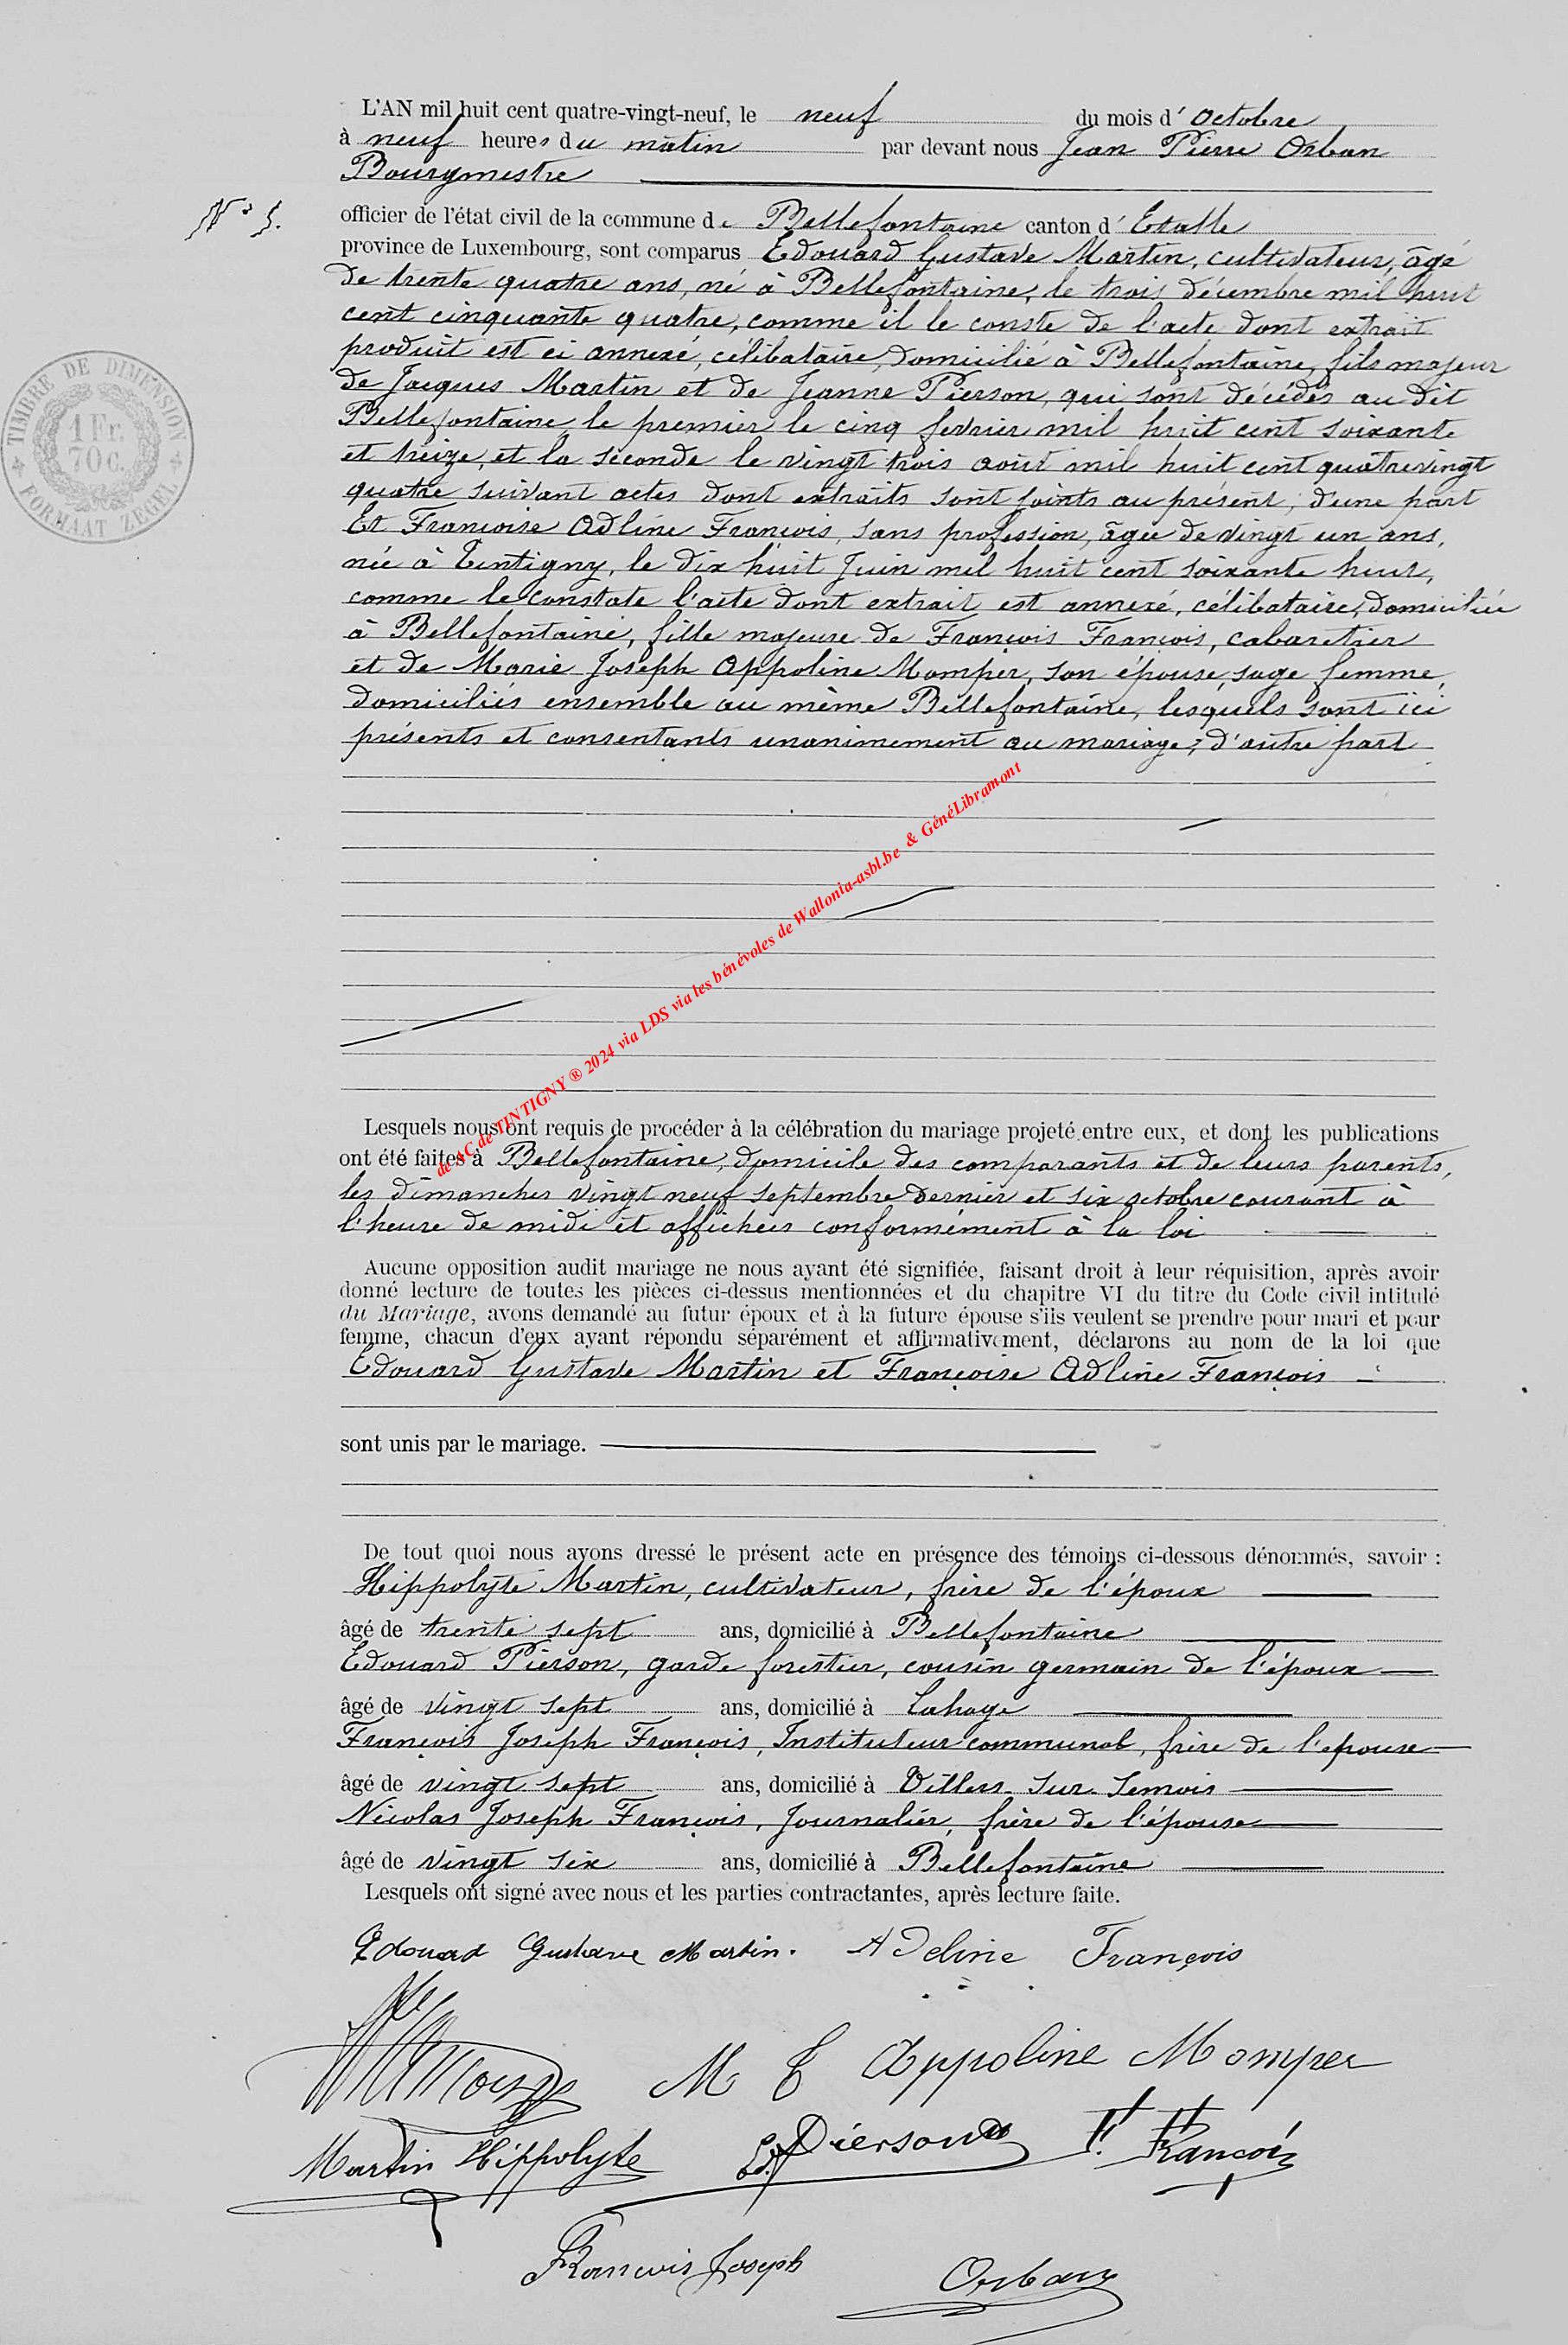 L'AN mil huit cent quatre-vingt-neuf, le neuf du mois d' Octobre
à neuf heures du matin par devant nous Jean Pierre Orban
Bourgmestre
N° 5.
officier de l'état civil de la commune de Bellefontaine canton d' Etalle
province de Luxembourg, sont comparus Edouard Gustave Martin, cultivateur, âgé
de trente quatre ans, né à Bellefontaine, le trois décembre mil huit
cent cinquante quatre, comme il le conste de l'acte dont extrait
produit est ci annexé, célibataire, domicilié à Bellefontaine, fils majeur
de Jacques Martin et de Jeanne Pierson, qui sont décédés au dit
Bellefontaine, le premier le cinq fevrier mil huit cent soixante
et treize, et la seconde le vingt trois août mil huit cent quatrevingt
quatre suivant actes dont extraits sont joints au présent, d'une part
Et Françoise Adline François, sans profession, âgée de vingt un ans,
née à Tintigny, le dix huit Juin mil huit cent soixante huit,
comme le constate l'acte dont extrait est annexé, célibataire, domiciliée
à Bellefontaine, fille majeure de François François, cabaretier
et de Marie Joseph Appoline Momper, son épouse, sage femme,
domiciliés ensemble au même Bellefontaine, lesquels sont ici
présents et consentants unanimement au mariage; d'autre part
TIMBRE DE DIMENSION
1 Fr.
70 c.
FORMAAT ZEGEL
de AC de TINTIGNY ® 2024 via LDS via les bénévoles de Wallonia-asbl.be & GénéLibramont
Lesquels nous ont requis de procéder à la célébration du mariage projeté entre eux, et dont les publications
ont été faites à Bellefontaine, domicile des comparants et de leurs parents,
les dimanches vingt neuf septembre dernier et six octobre courant à
l'heure de midi et affichées conformément à la loi
Aucune opposition audit mariage ne nous ayant été signifiée, faisant droit à leur réquisition, après avoir
donné lecture de toutes les pièces ci-dessus mentionnées et du chapitre VI du titre du Code civil intitulé
du Mariage, avons demandé au futur époux et à la future épouse s'ils veulent se prendre pour mari et pour
femme, chacun d'eux ayant répondu séparément et affirmativement, déclarons au nom de la loi que
Edouard Gustave Martin et Françoise Adline François
sont unis par le mariage.
De tout quoi nous avons dressé le présent acte en présence des témoins ci-dessous dénommés, savoir :
Hippolyte Martin, cultivateur, frère de l'époux
âgé de trente sept ans, domicilié à Bellefontaine
Edouard Pierson, garde forestier, cousin germain de l'époux
âgé de vingt sept ans, domicilié à Lahage
François Joseph François, Instituteur communal, frère de l'epouse
âgé de vingt sept ans, domicilié à Villers-sur-Semois
Nicolas Joseph François, Journalier, frère de l'épouse
âgé de vingt six ans, domicilié à Bellefontaine
Lesquels ont signé avec nous et les parties contractantes, après lecture faite.
Edouard Gustave Martin. Adeline François
M J Appoline Momper
Martin Hippolyte Ed. Pierson F. François
François Joseph Orban